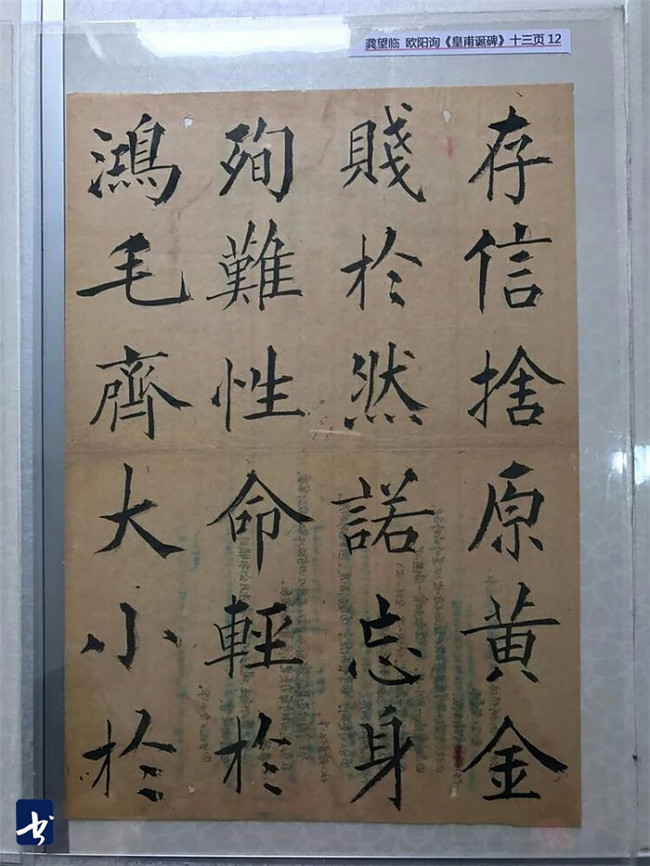 龚望临 欧阳询《皇甫诞碑》十三页 12
存信捨原黄金
賤於然諾忘身
殉難性命輕於
鴻毛齊大小於